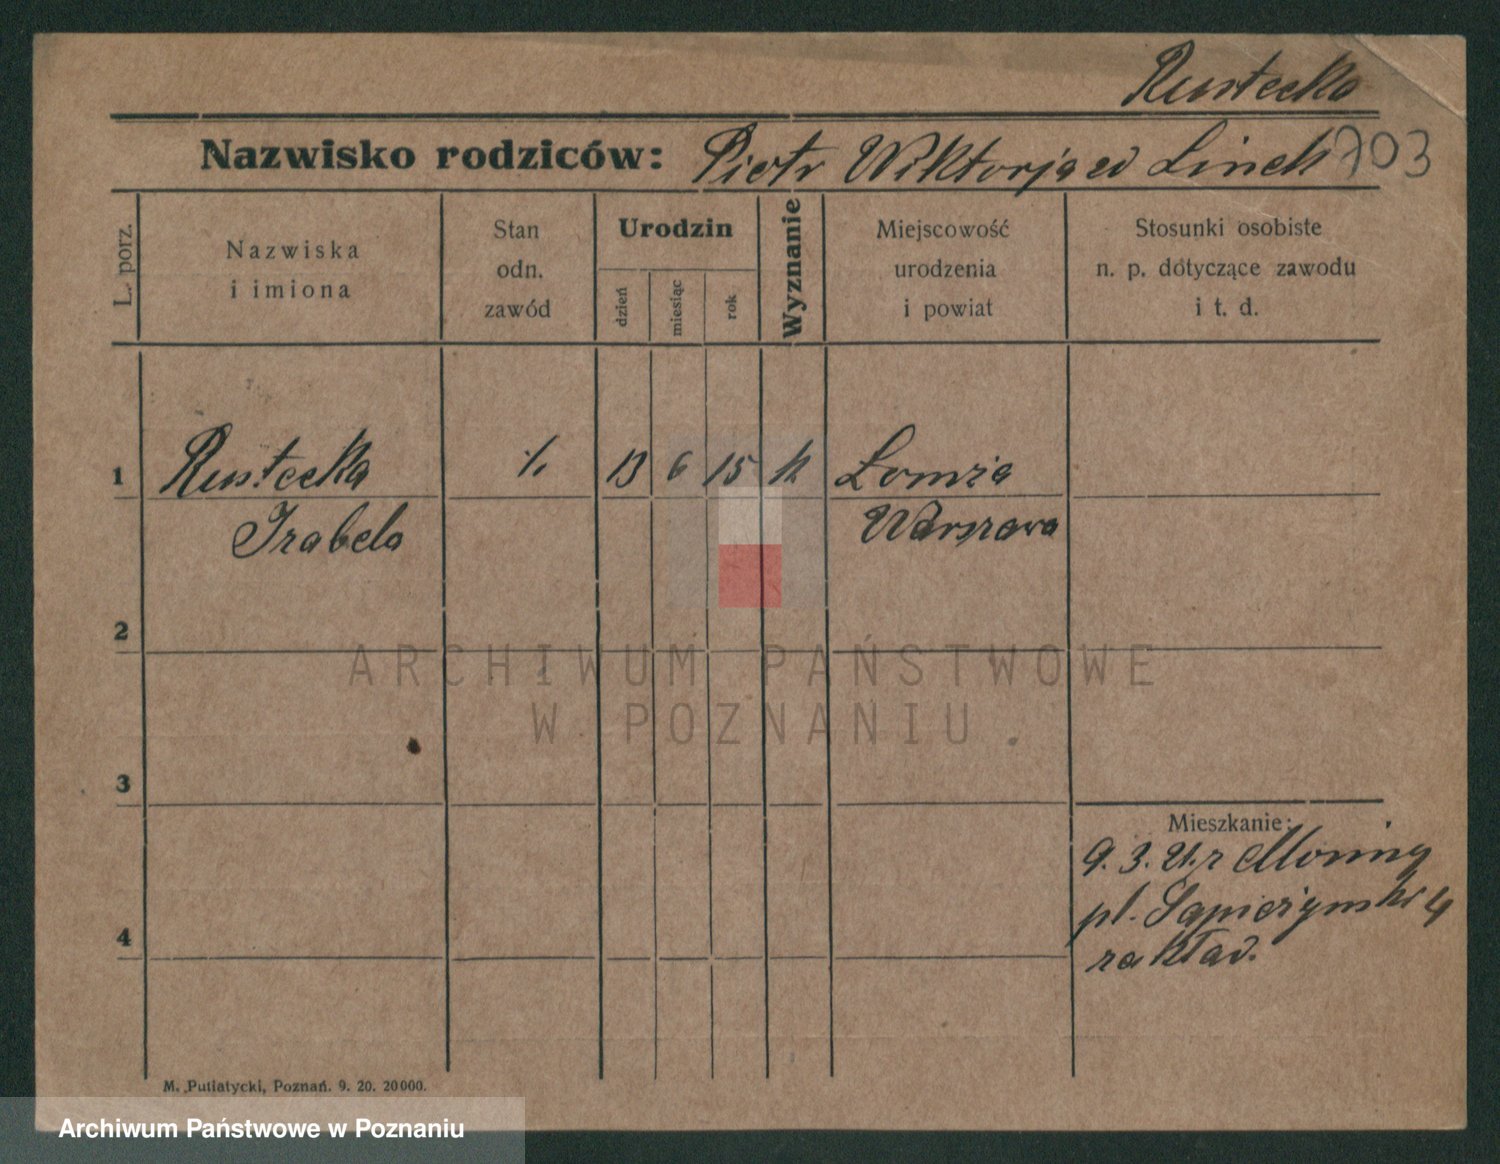 Rustecka
Nazwisko rodziców: Piotr Wiktorja zd Linek 703
L. porz.
Nazwiska
i imiona
Stan
odn.
zawód
Urodzin
dzień
miesiąc
rok
Wyznanie
Miejscowość
urodzenia
i powiat
Stosunki osobiste
n. p. dotyczące zawodu
i t. d.
1 Rustecka % 13 6 15 k Lomza
Izabela Warszawa
2
ARCHIWUM PAŃSTWOWE
W POZNANIU
3
Mieszkanie:
9. 3. 21. r
pl. Sapieżyński 4
4
zakład.
M. Putiatycki, Poznań. 9. 20. 20000.
Archiwum Państwowe w Poznaniu